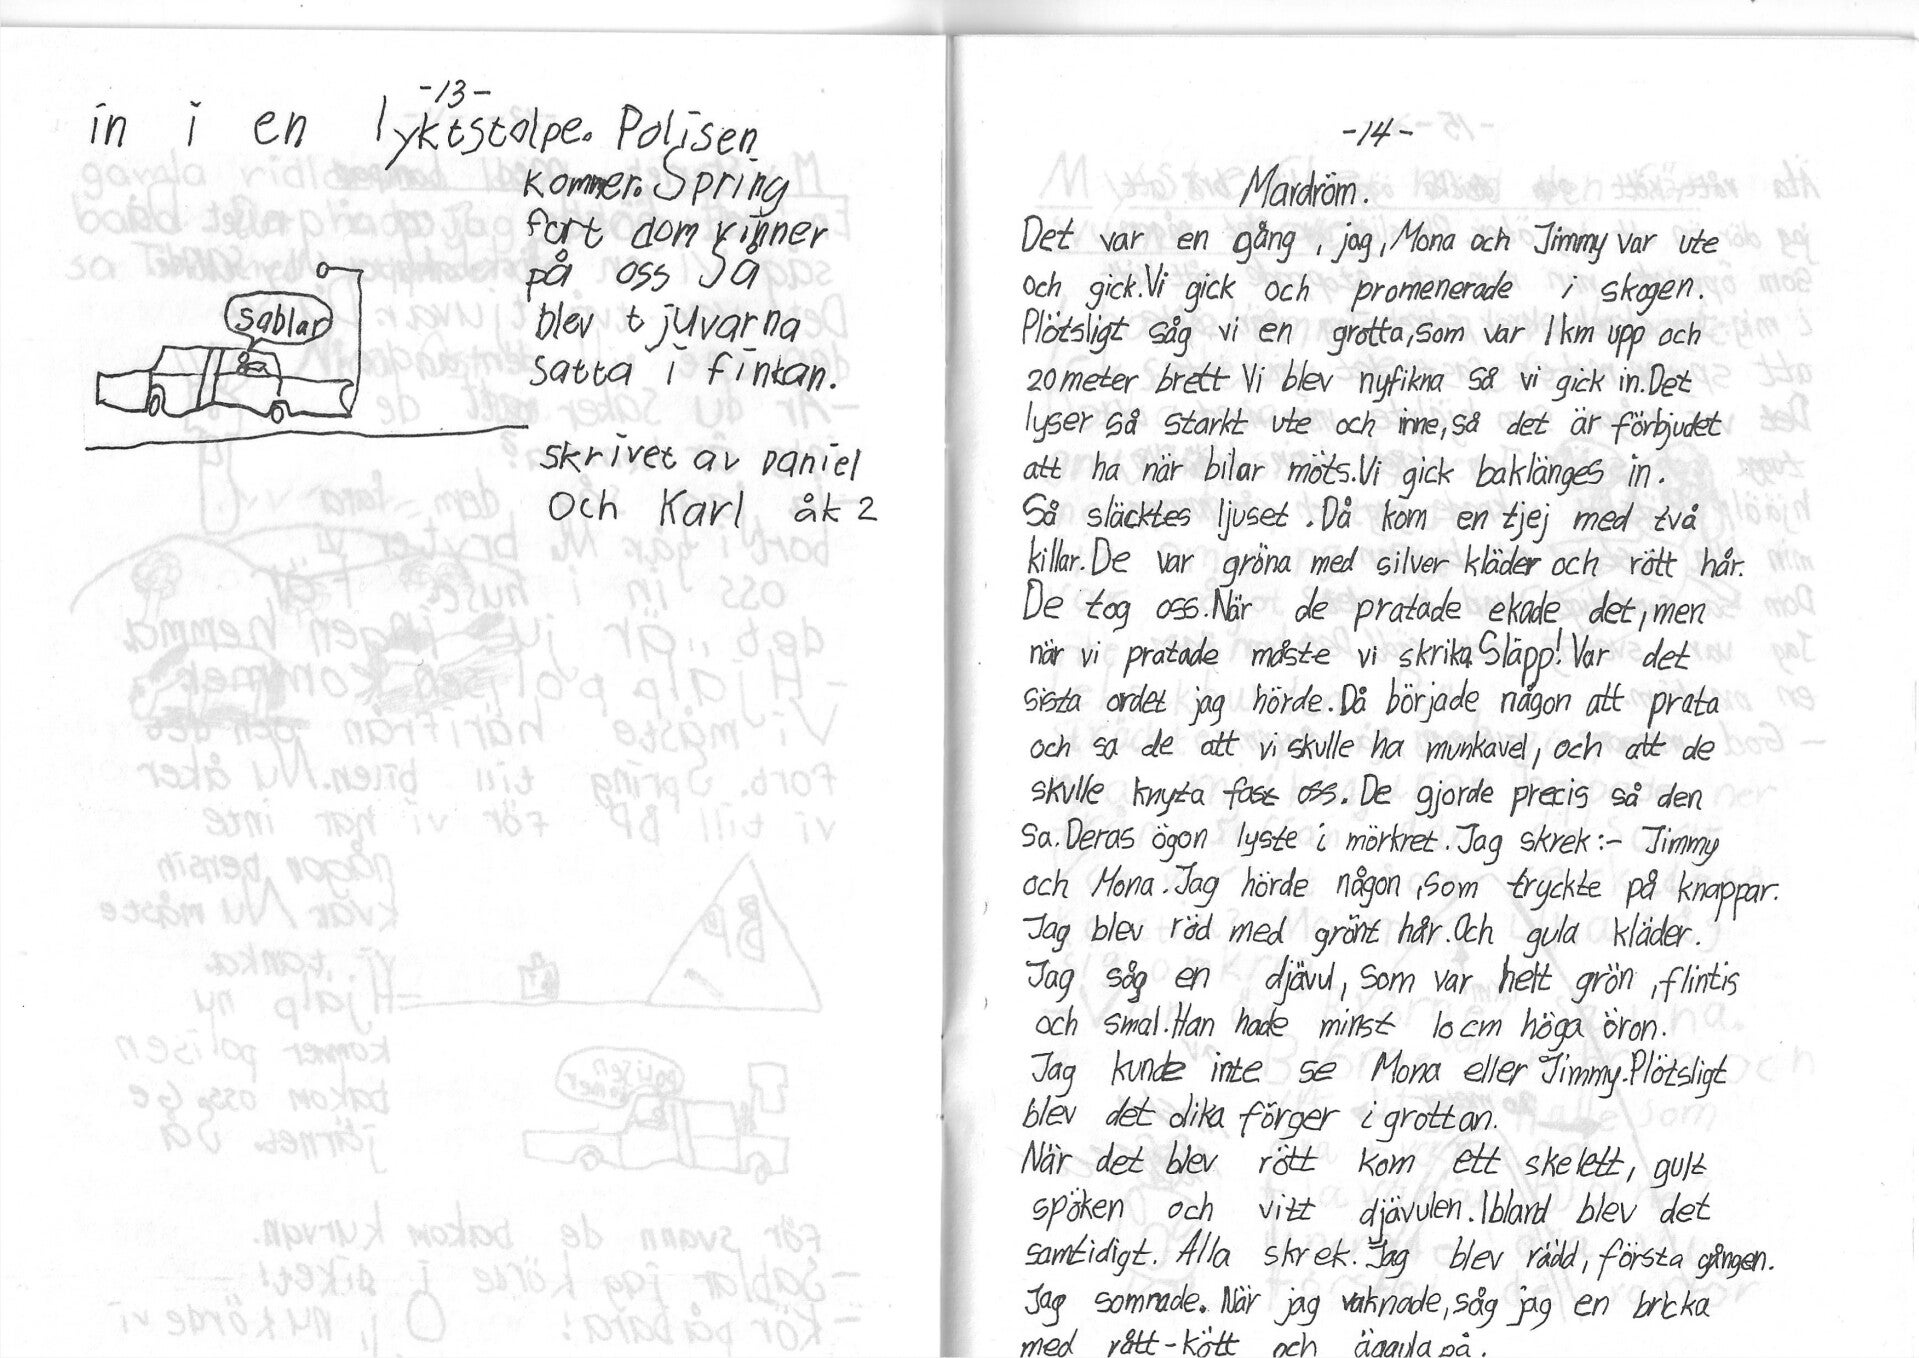 -13-
in i en lyktstolpe. Polisen
kommer. Spring
fort dom rinner
på oss Så
blev tjuvarna
satta i finkan.
sablar
skrivet av Daniel
Och Karl åk 2
-14-
Mardröm.
Det var en gång, jag, Mona och Jimmy var ute
och gick. Vi gick och promenerade i skogen.
Plötsligt såg vi en grotta, som var 1 km upp och
20 meter brett Vi blev nyfikna så vi gick in. Det
lyser så starkt ute och inne, så det är förbjudet
att ha när bilar möts. Vi gick baklänges in.
Så släcktes ljuset. Då kom en tjej med två
killar. De var gröna med silver kläder och rött hår.
De tog oss. När de pratade ekade det, men
när vi pratade måste vi skrika. Släpp! Var det
sista ordet jag hörde. Då började någon att prata
och sa de att vi skulle ha munkavel, och att de
skulle knyta fast oss. De gjorde precis så den
sa. Deras ögon lyste i mörkret. Jag skrek:- Jimmy
och Mona. Jag hörde någon, som tryckte på knappar.
Jag blev röd med grönt hår. Och gula kläder.
Jag såg en djävul, som var helt grön, flintis
och smal. Han hade minst 10 cm höga öron.
Jag kunde inte se Mona eller Jimmy. Plötsligt
blev det olika förger i grottan.
När det blev rött kom ett skelett, gult
spöken och vitt djävulen. Ibland blev det
samtidigt. Alla skrek. Jag blev rädd, första gången.
Jag somnade. När jag vaknade, såg jag en bricka
med rått-kött och äggula på.